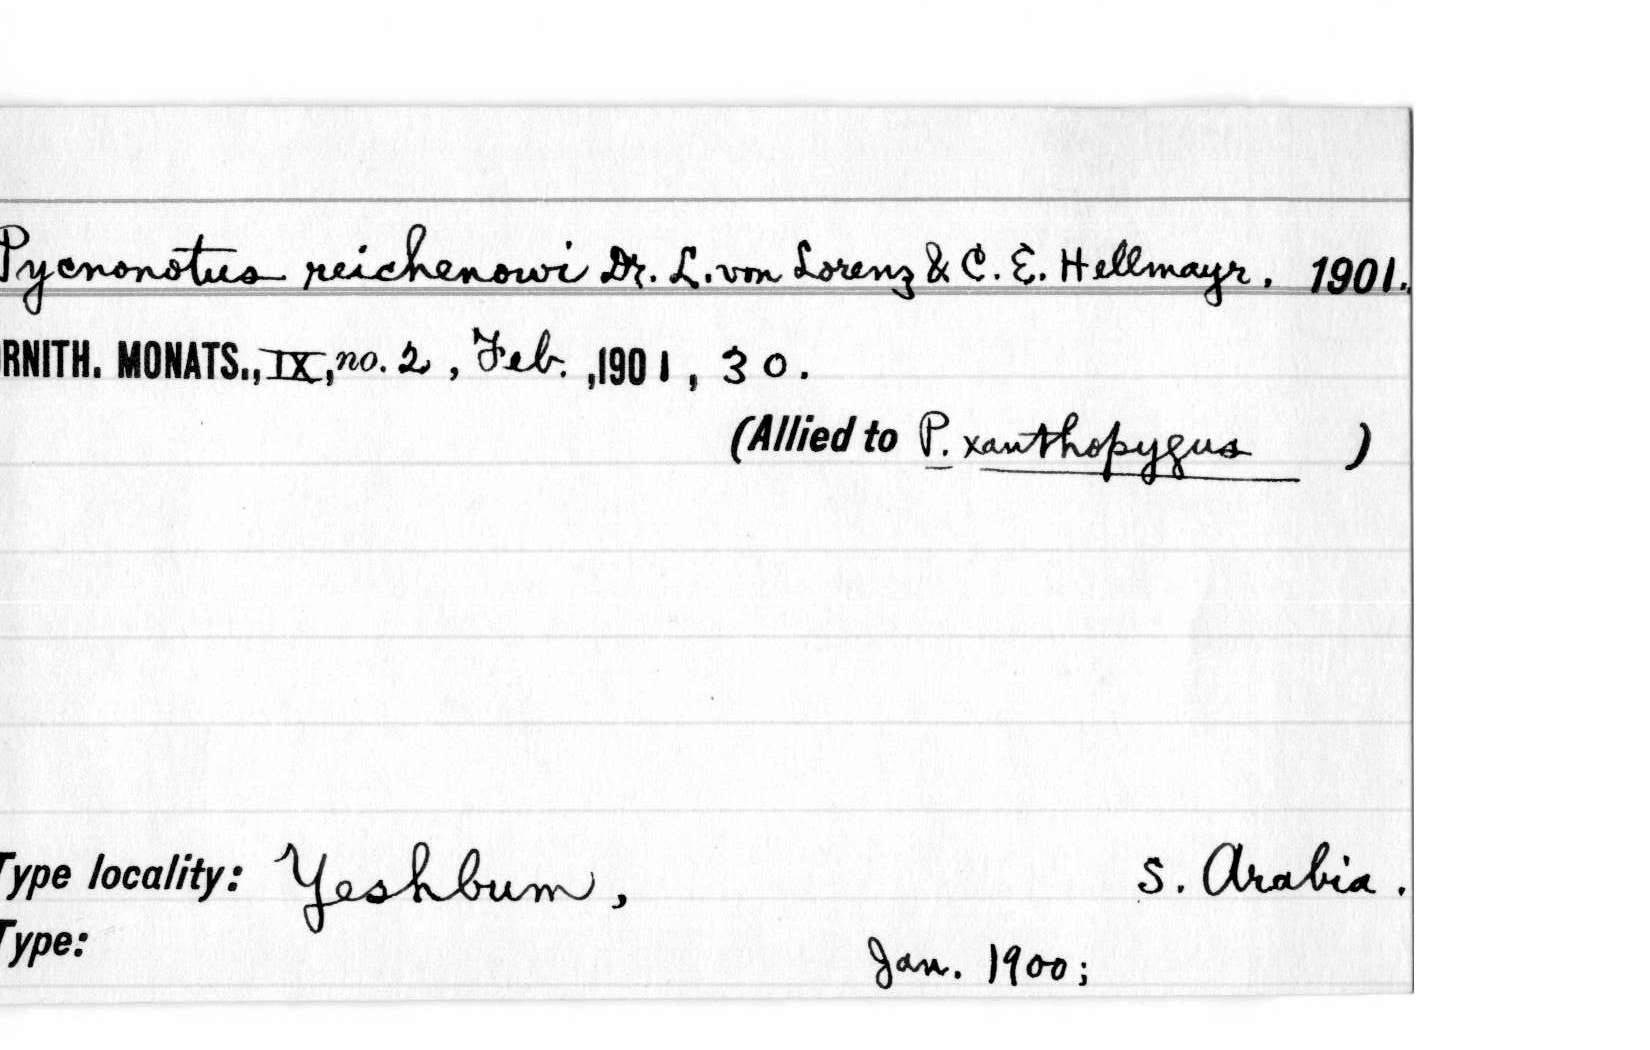 Pycnonotus reichenowi Dr. L. von Lorenz & C. E. Hellmayr. 1901.
RNITH. MONATS., IX, no. 2, Feb., 1901, 30.
(Allied to P. xanthopygus )
Type locality: Yeshbum, S. Arabia.
Type: Jan. 1900;